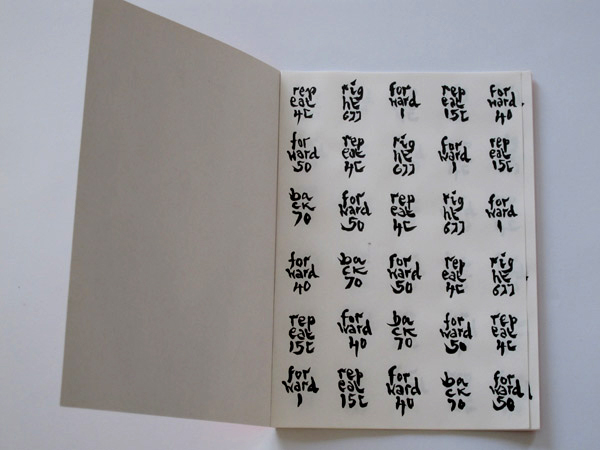 rep eat 4[ rig ht 6]] for ward 1 rep eat 15[ for ward 40
for ward 50 rep eat 4[ rig ht 6]] for ward 1 rep eat 15[
ba ck 70 for ward 50 rep eat 4[ rig ht 6]] for ward 1
for ward 40 ba ck 70 for ward 50 rep eat 4[ rig ht 6]]
rep eat 15[ for ward 40 ba ck 70 for ward 50 rep eat 4[
for ward 1 rep eat 15[ for ward 40 ba ck 70 for ward 50